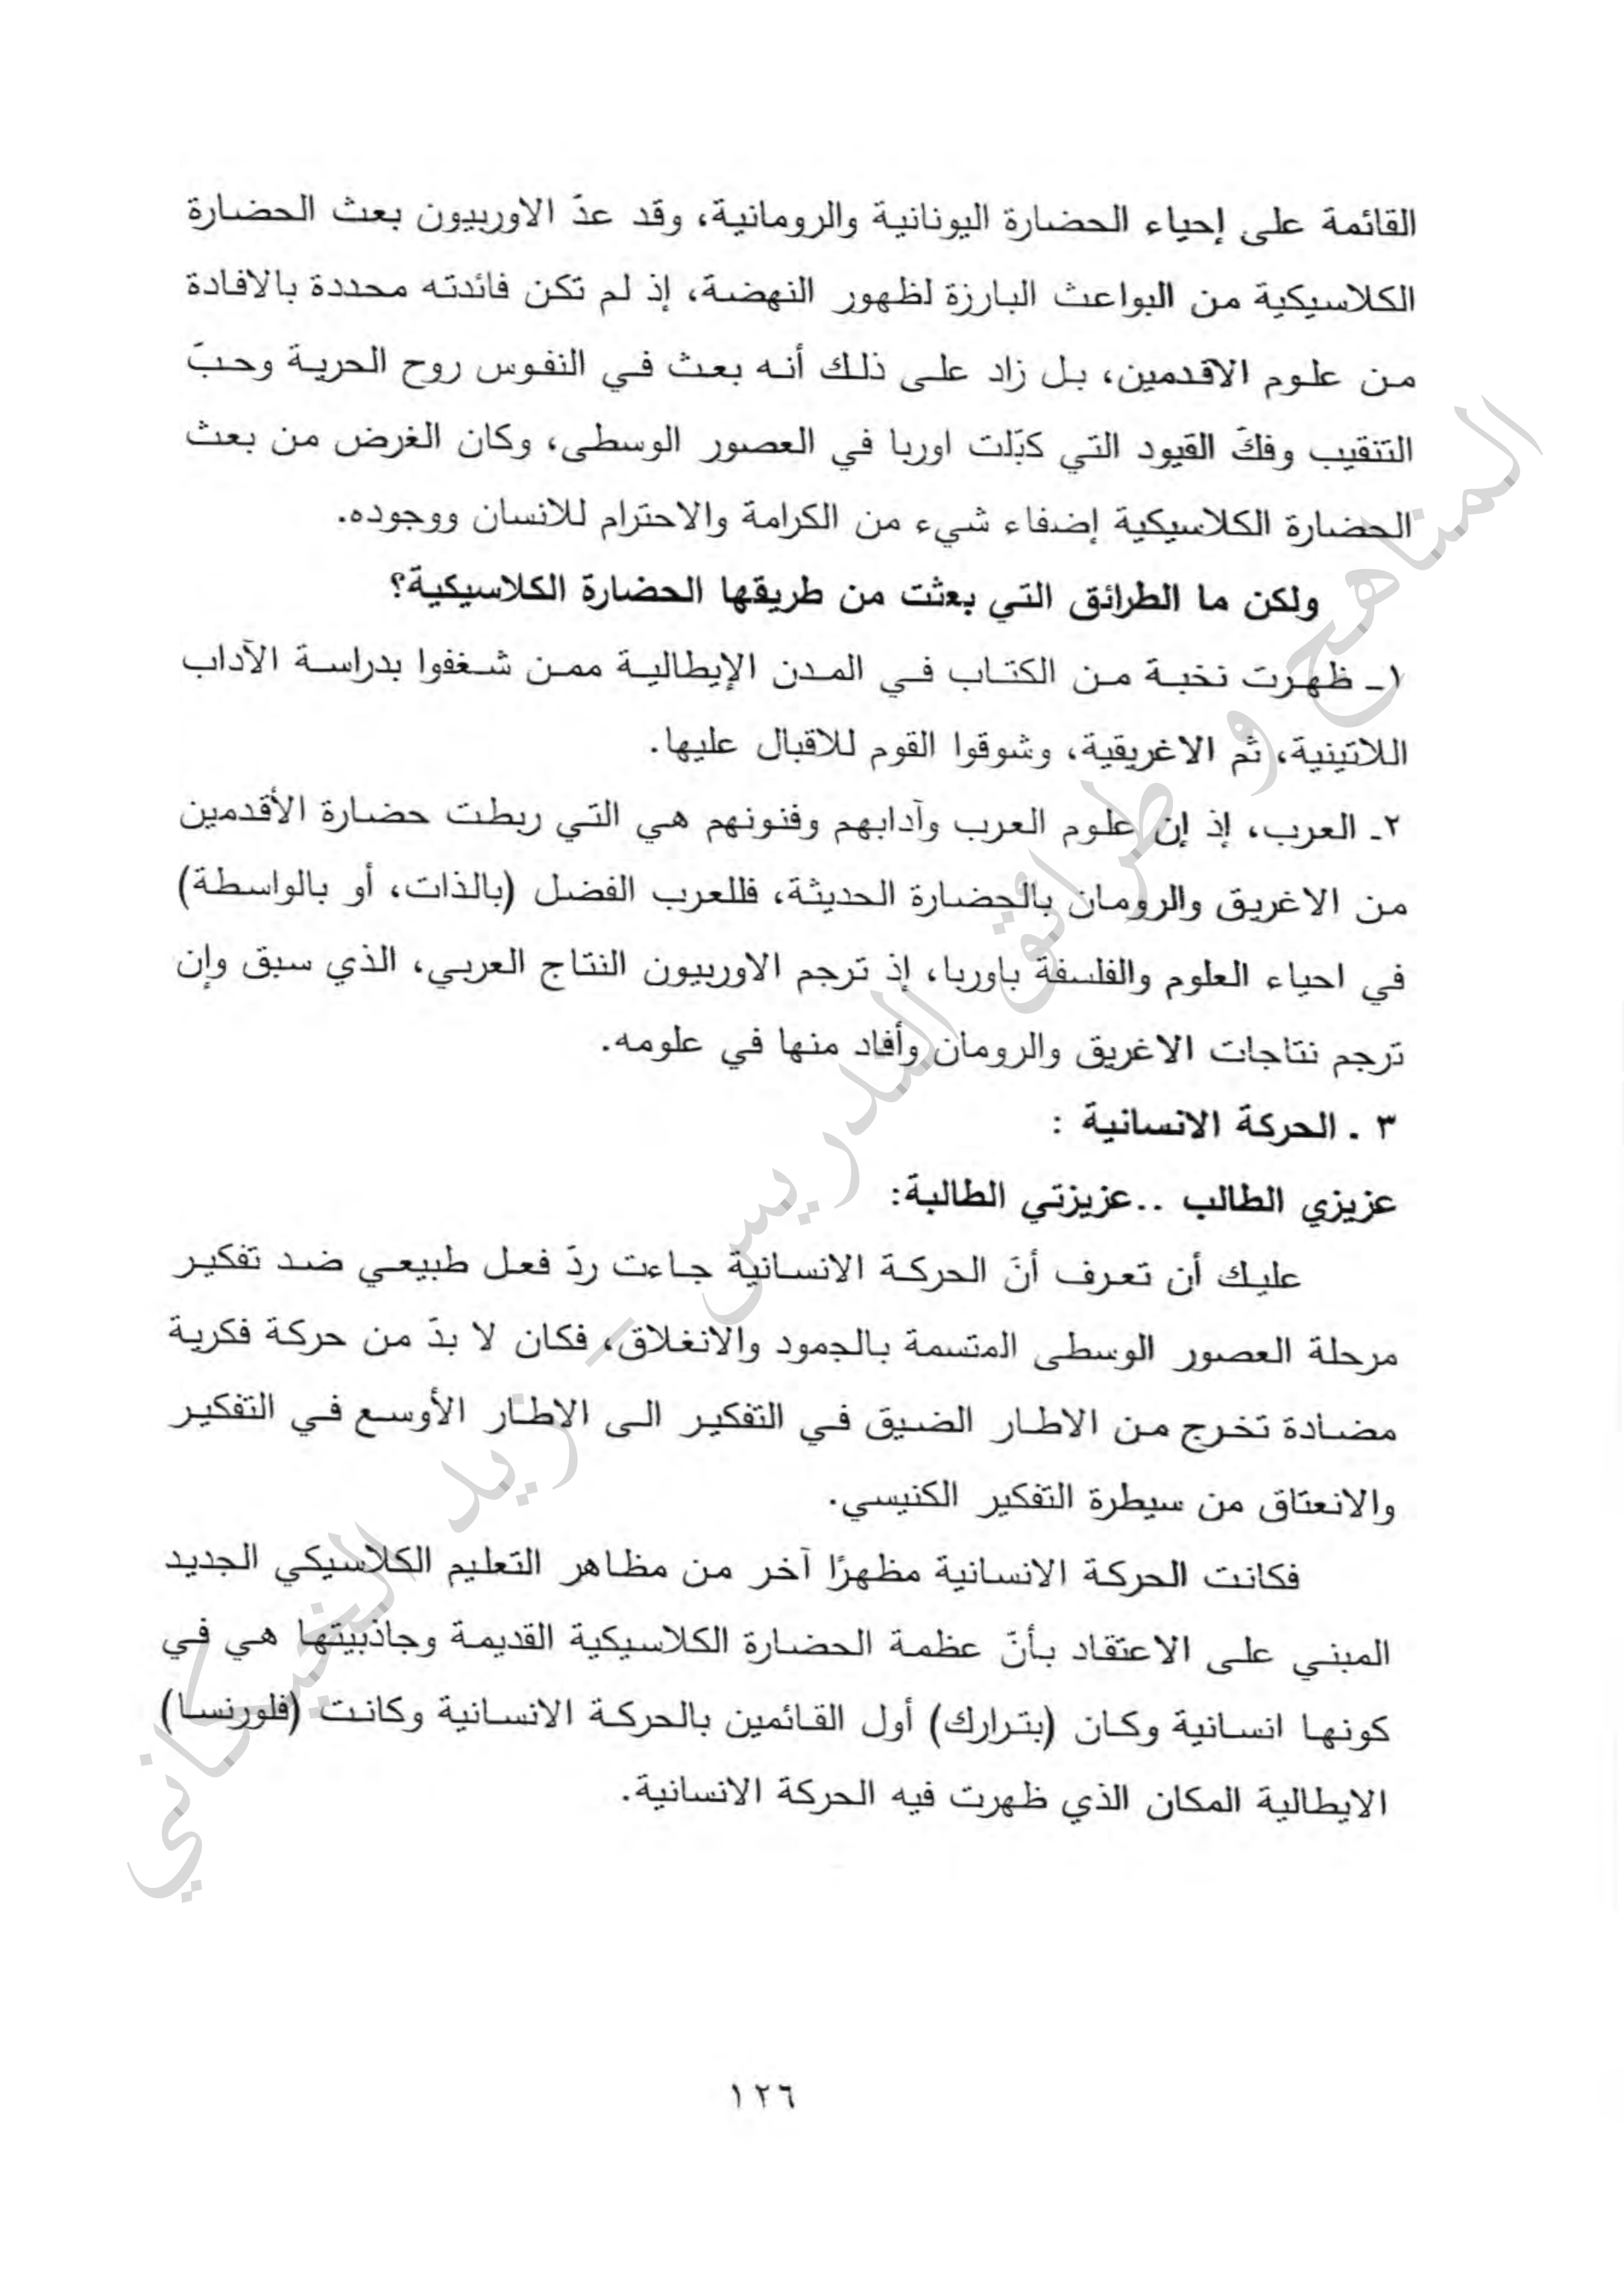 القائمة على إحياء الحضارة اليونانية والرومانية، وقد عدّ الاوربيون بعث الحضارة
الكلاسيكية من البواعث البارزة لظهور النهضة، إذ لم تكن فائدته محددة بالافادة
من علوم الاقدمين، بل زاد على ذلك أنه بعث في النفوس روح الحرية وحبّ
التنقيب وفكّ القيود التي كبّلت اوربا في العصور الوسطى، وكان الغرض من بعث
الحضارة الكلاسيكية إضفاء شيء من الكرامة والاحترام للانسان ووجوده.
ولكن ما الطرائق التي بعثت من طريقها الحضارة الكلاسيكية؟
١ـ ظهرت نخبة من الكتاب في المدن الإيطالية ممن شغفوا بدراسة الآداب
اللاتينية، ثم الاغريقية، وشوقوا القوم للاقبال عليها.
٢ـ العرب، إذ إن علوم العرب وآدابهم وفنونهم هي التي ربطت حضارة الأقدمين
من الاغريق والرومان بالحضارة الحديثة، فللعرب الفضل (بالذات، أو بالواسطة)
في احياء العلوم والفلسفة باوربا، إذ ترجم الاوربيون النتاج العربي، الذي سبق وإن
ترجم نتاجات الاغريق والرومان وأفاد منها في علومه.
٣ . الحركة الانسانية :
عزيزي الطالب ..عزيزتي الطالبة:
عليك أن تعرف أنّ الحركة الانسانية جاءت ردّ فعل طبيعي ضد تفكير
مرحلة العصور الوسطى المتسمة بالجمود والانغلاق، فكان لا بدّ من حركة فكرية
مضادة تخرج من الاطار الضيق في التفكير الى الاطار الأوسع في التفكير
والانعتاق من سيطرة التفكير الكنيسي.
فكانت الحركة الانسانية مظهرًا آخر من مظاهر التعليم الكلاسيكي الجديد
المبني على الاعتقاد بأنّ عظمة الحضارة الكلاسيكية القديمة وجاذبيتها هي في
كونها انسانية وكان (بترارك) أول القائمين بالحركة الانسانية وكانت (فلورنسا)
الايطالية المكان الذي ظهرت فيه الحركة الانسانية.
١٢٦
المناهج و طرائق التدريس - زيد الخيكاني